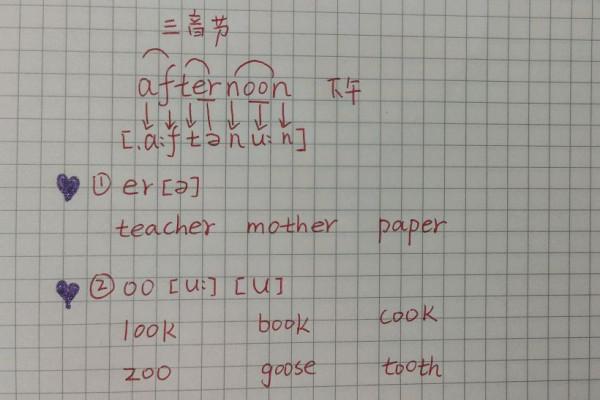 三音节
afternoon 下午
[ˌɑːftənuːn]
① er [ə]
teacher mother paper
② oo [uː] [u]
look book cook
zoo goose tooth